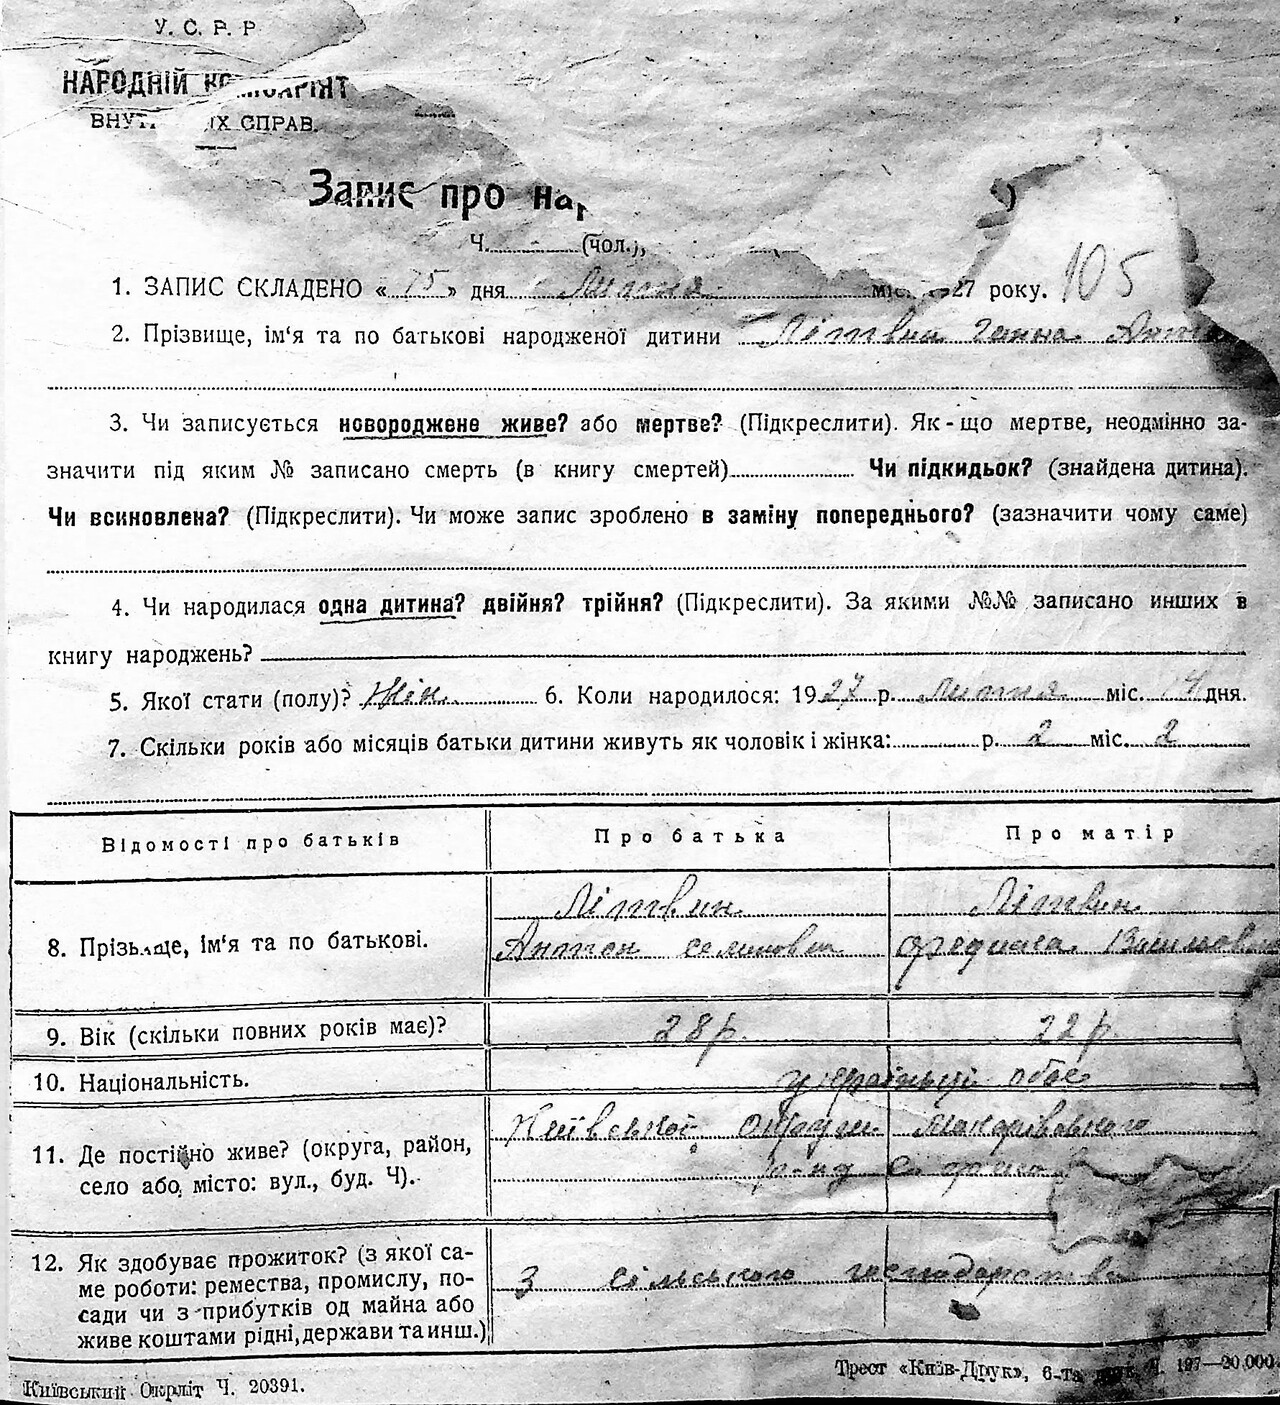 У. С. Р. Р
НАРОДНІЙ
СПРАВ.
Запис про
Ч. (чол.),
1. ЗАПИС ЄКЛАДЕНО « 15 » дня Липня міс. 27 року. 105
2. Прізвище, ім'я та по батькові народженої дитини Літвин Ганна
3. Чи записується новороджене живе? або мертве? (Підкреслити). Як-що мертве, неодмінно за-
значити під яким № записано смерть (в книгу смертей) Чи підкидьок? (знайдена дитина).
Чи всиновлена? (Підкреслити). Чи може запис зроблено в заміну попереднього? (зазначити чому саме)
4. Чи народилася одна дитина? двійня? трійня? (Підкреслити). За якими №№ записано инших в
книгу народжень?
5. Якої стати (полу)? Жін. 6. Коли народилося: 1927 р. липня міс. 14 дня.
7. Скільки років або місяців батьки дитини живуть як чоловік і жінка: р. 2 міс. 2
Відомості про батьків Про батька Про матір
8. ім'я та по батькові. Літвин Літвин
Антон
9. Вік (скільки повних років має)? 28 р. 22 р.
10. Національність. обоє
11. Де постійно живе? (округа, район, Київської округи Макарівського
село або місто: вул., буд. Ч).
12. Як здобуває прожиток? (з якої са-
ме роботи: ремества, промислу, по- З сільського господарства
сади чи з прибутків од майна або
живе коштами рідні, держави та инш.)
Київський Окрліт Ч. 20391.
Трест «Київ-Друк», 6-та 20.000